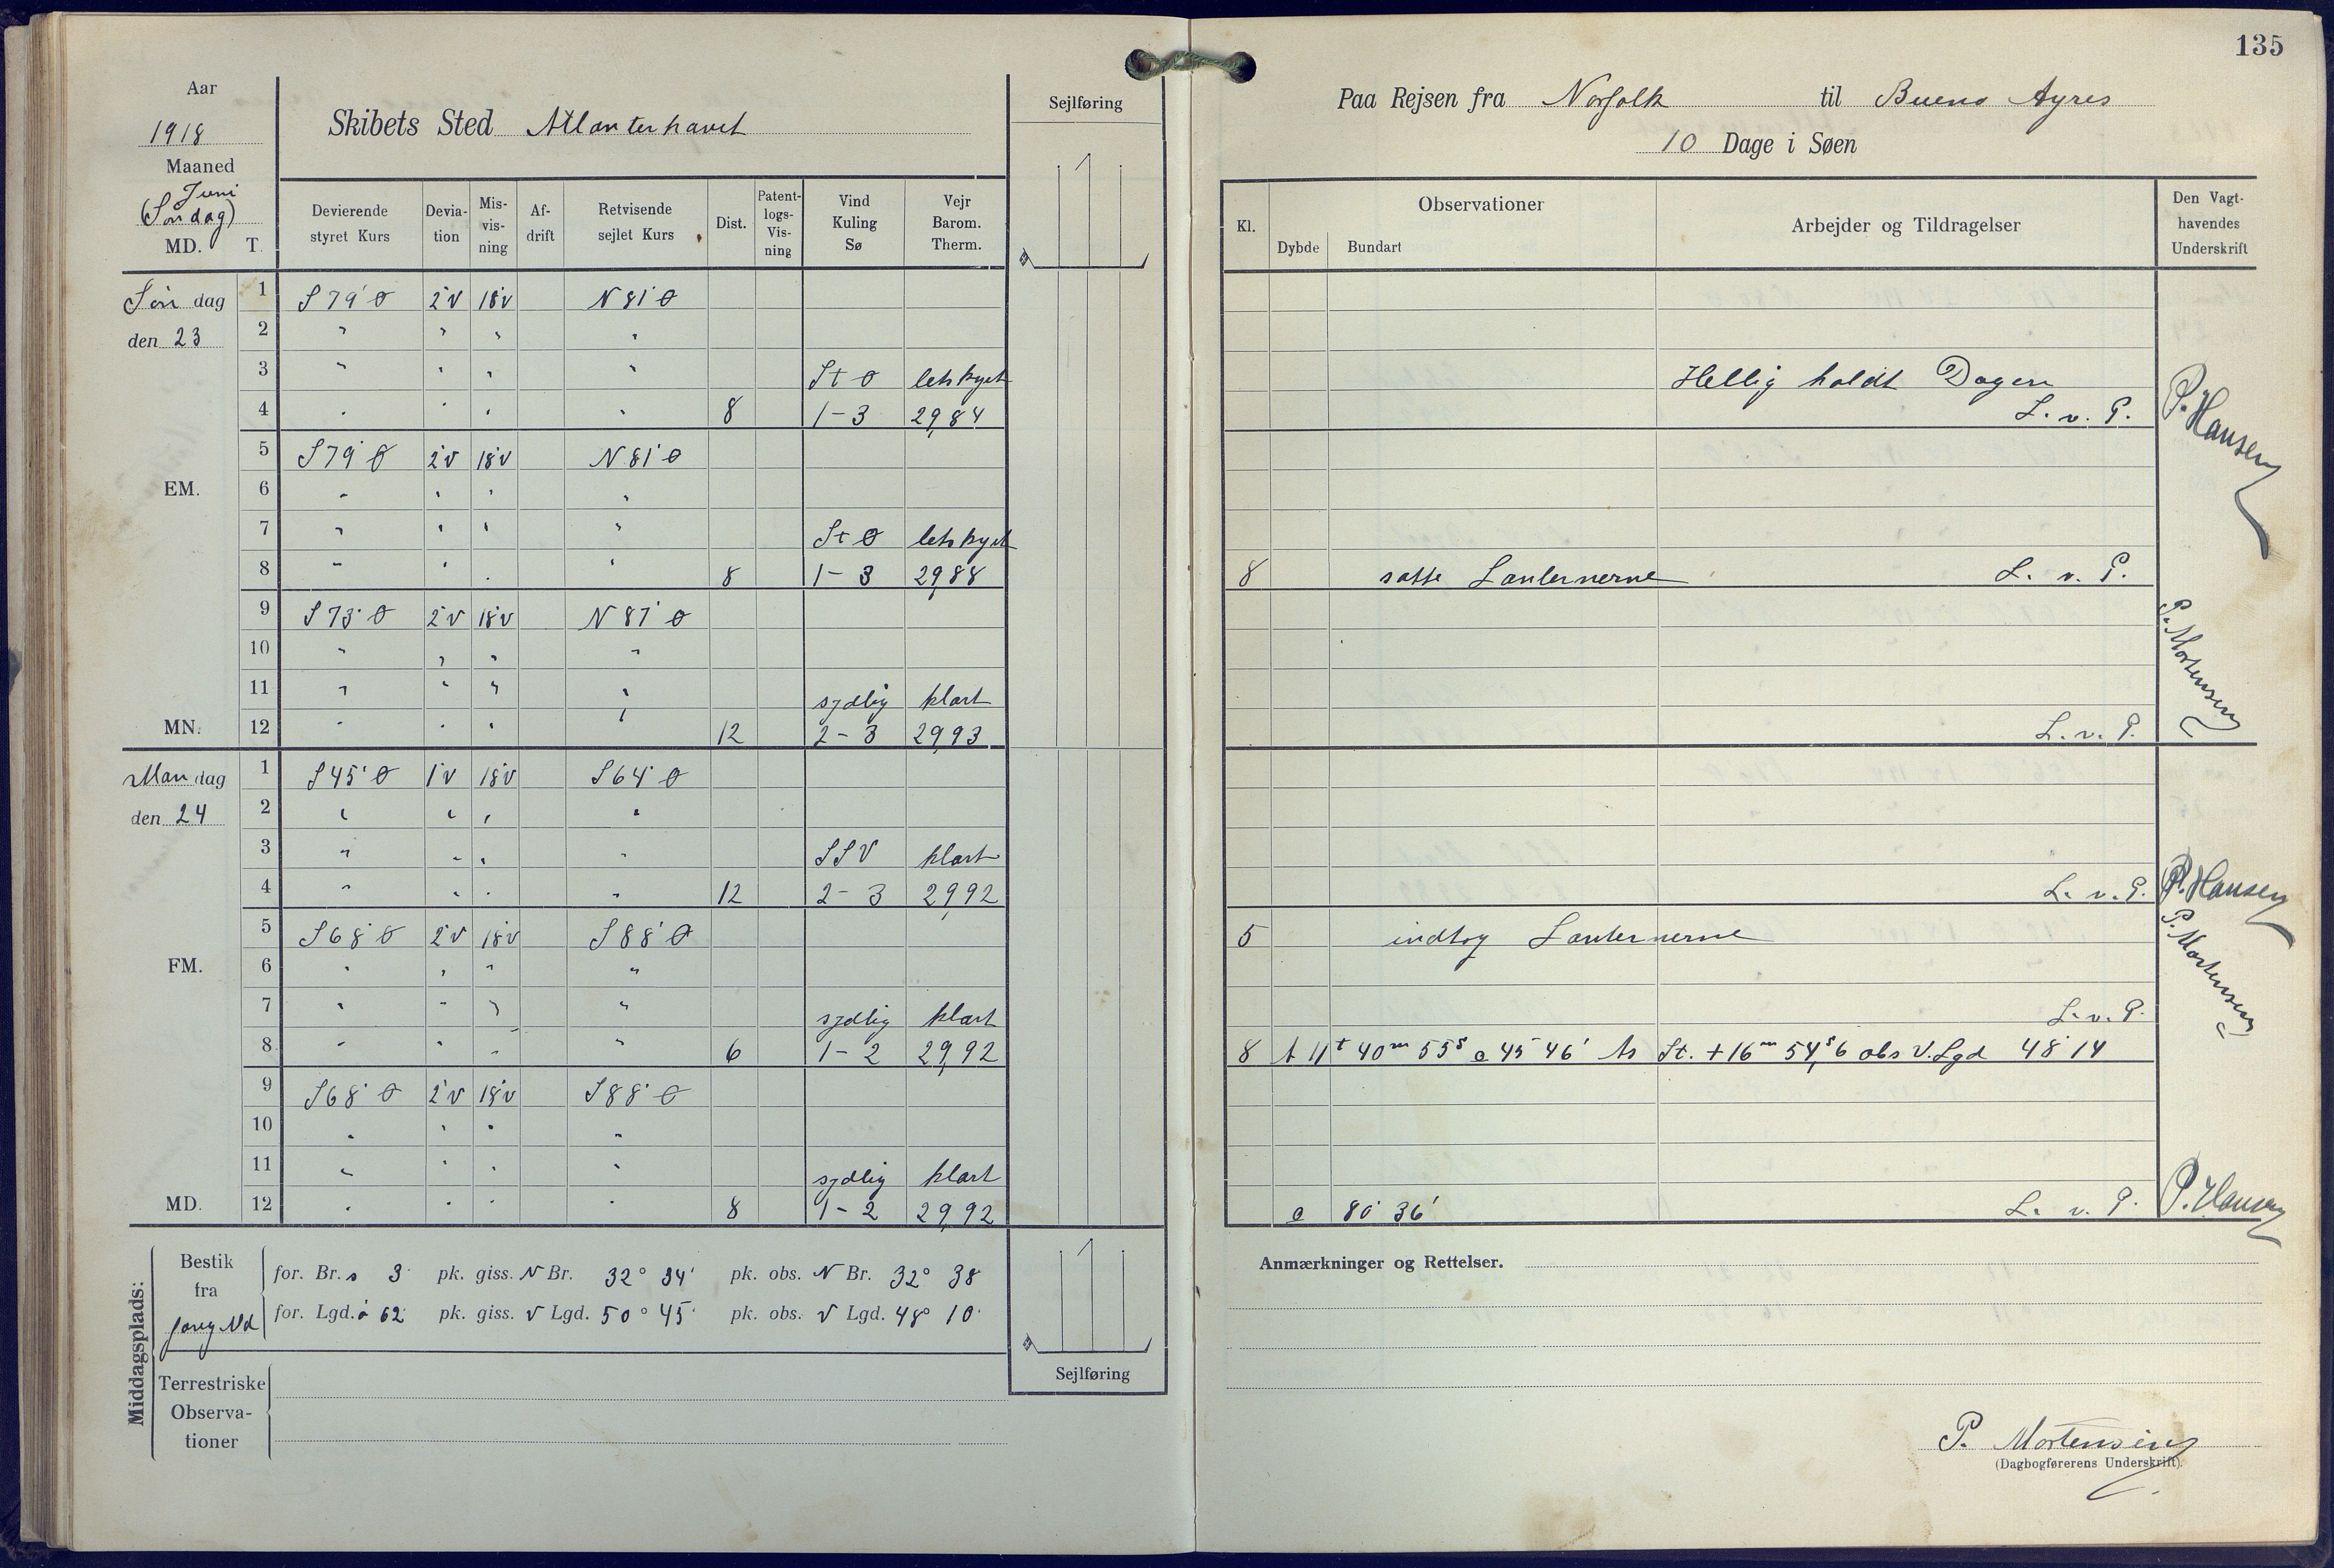 135
Aar
1918
Maaned
Juni
(Søndag)
MD. T.
Skibets Sted Atlanterhavet
Sejlføring
Paa Rejsen fra Norfolk til Bueno Ayres
10 Dage i Søen
Devierende styret Kurs
Devia-tion
Mis-vis-ning
Af-drift
Retvisende sejlet Kurs
Dist.
Patent-logs-Vis-ning
Vind Kuling Sø
Vejr Barom. Therm.
Kl.
Observationer
Dybde Bundart
Arbejder og Tildragelser
Den Vagt-havendes Underskrift
Søn dag 1 S 79° Ø 2°V 18°V N 81° Ø
den 23 2 " " " "
3 " " " " St Ø letskyet Hellig holdt Dagen
4 " " " " 8 1-3 29,84 L. v. P. P. Hansen
5 S 79° Ø 2°V 18°V N 81° Ø
EM. 6 " " " "
7 " " " " St Ø letskyet
8 " " " " 8 1-3 29,88 8 satte Lanternerne L. v. P.
9 S 73° Ø 2°V 18°V N 87° Ø
10 " " " " P. Mortensen
11 " " " " sydlig klart
MN. 12 " " " " 12 2-3 29,93 L. v. P.
Man dag 1 S 45° Ø 1°V 18°V S 64° Ø
den 24 2 " " " "
3 " " " " SSV klart
4 " " " " 12 2-3 29,92 L. v. P. P. Hansen
5 S 68° Ø 2°V 18°V S 88° Ø 5 indtog Lanternerne
FM. 6 " " " " P. Mortensen
7 " " " " sydlig klart L. v. P.
8 " " " " 6 1-2 29,92 8 11t 40m 55s 45° 46' St. +16m 54,s6 obs V. Lgd 48° 14
9 S 68° Ø 2°V 18°V S 88° Ø
10 " " " "
11 " " " " sydlig klart
MD. 12 " " " " 8 1-2 29,92 80° 36' L. v. P. P. Hansen
Middagsplads:
Bestik fra forrig Md
for. Br. s 3' pk. giss. N Br. 32° 34' pk. obs. N Br. 32° 38'
for. Lgd. ø 62' pk. giss. V Lgd. 50° 45' pk. obs. V Lgd. 48° 10'
Terrestriske Observa-tioner
Sejlføring
Anmærkninger og Rettelser.
P. Mortensen
(Dagbogførerens Underskrift).